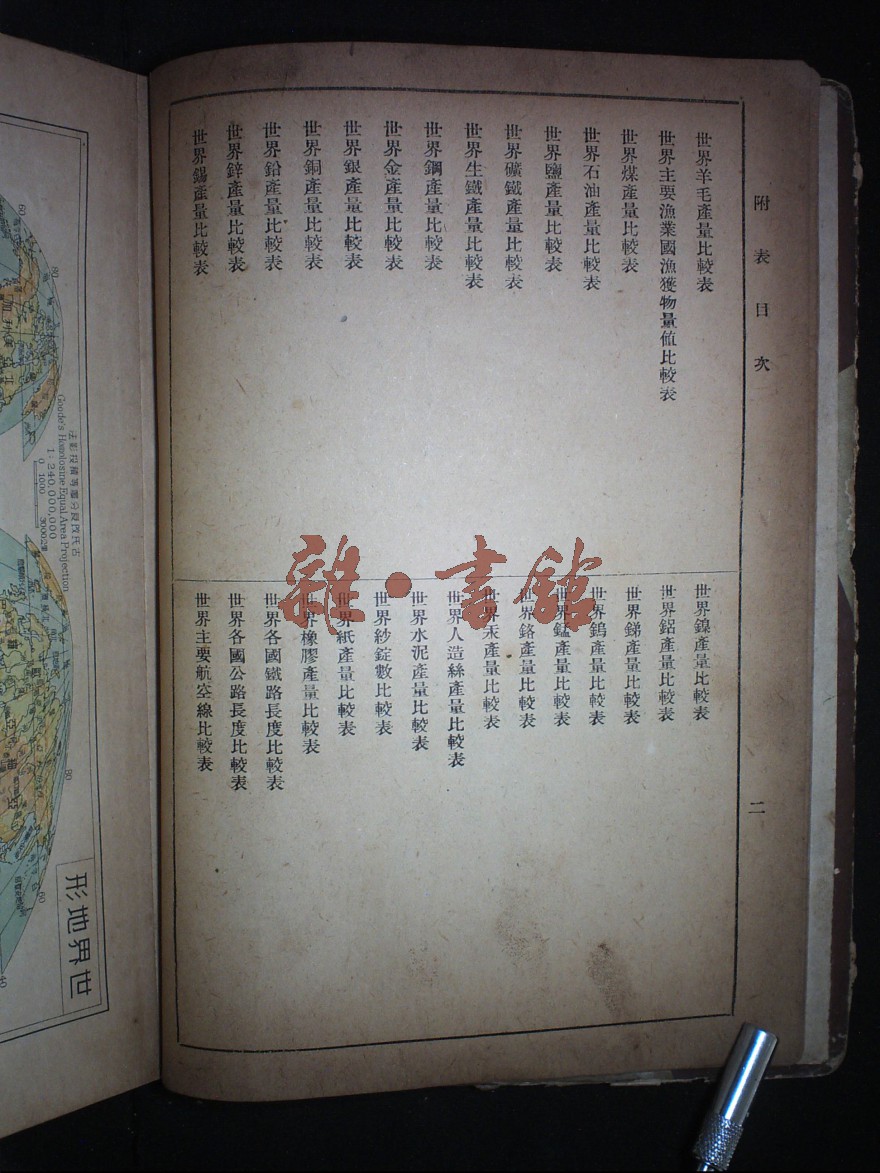 附表目次
二
世界羊毛產量比較表
世界主要漁業國漁獲物量值比較表
世界煤產量比較表
世界石油產量比較表
世界鹽產量比較表
世界礦鐵產量比較表
世界生鐵產量比較表
世界鋼產量比較表
世界金產量比較表
世界銀產量比較表
世界銅產量比較表
世界鉛產量比較表
世界鋅產量比較表
世界錫產量比較表
世界鎳產量比較表
世界鋁產量比較表
世界銻產量比較表
世界鎢產量比較表
世界錳產量比較表
世界鉻產量比較表
世界汞產量比較表
世界人造絲產量比較表
世界水泥產量比較表
世界紗錠數比較表
世界紙產量比較表
世界橡膠產量比較表
世界各國鐵路長度比較表
世界各國公路長度比較表
世界主要航空線比較表
雜·書館
古氏改良分瓣等積投影法
Goode's Homolosine Equal Area Projection
1:240,000,000
0 1000
世界地形